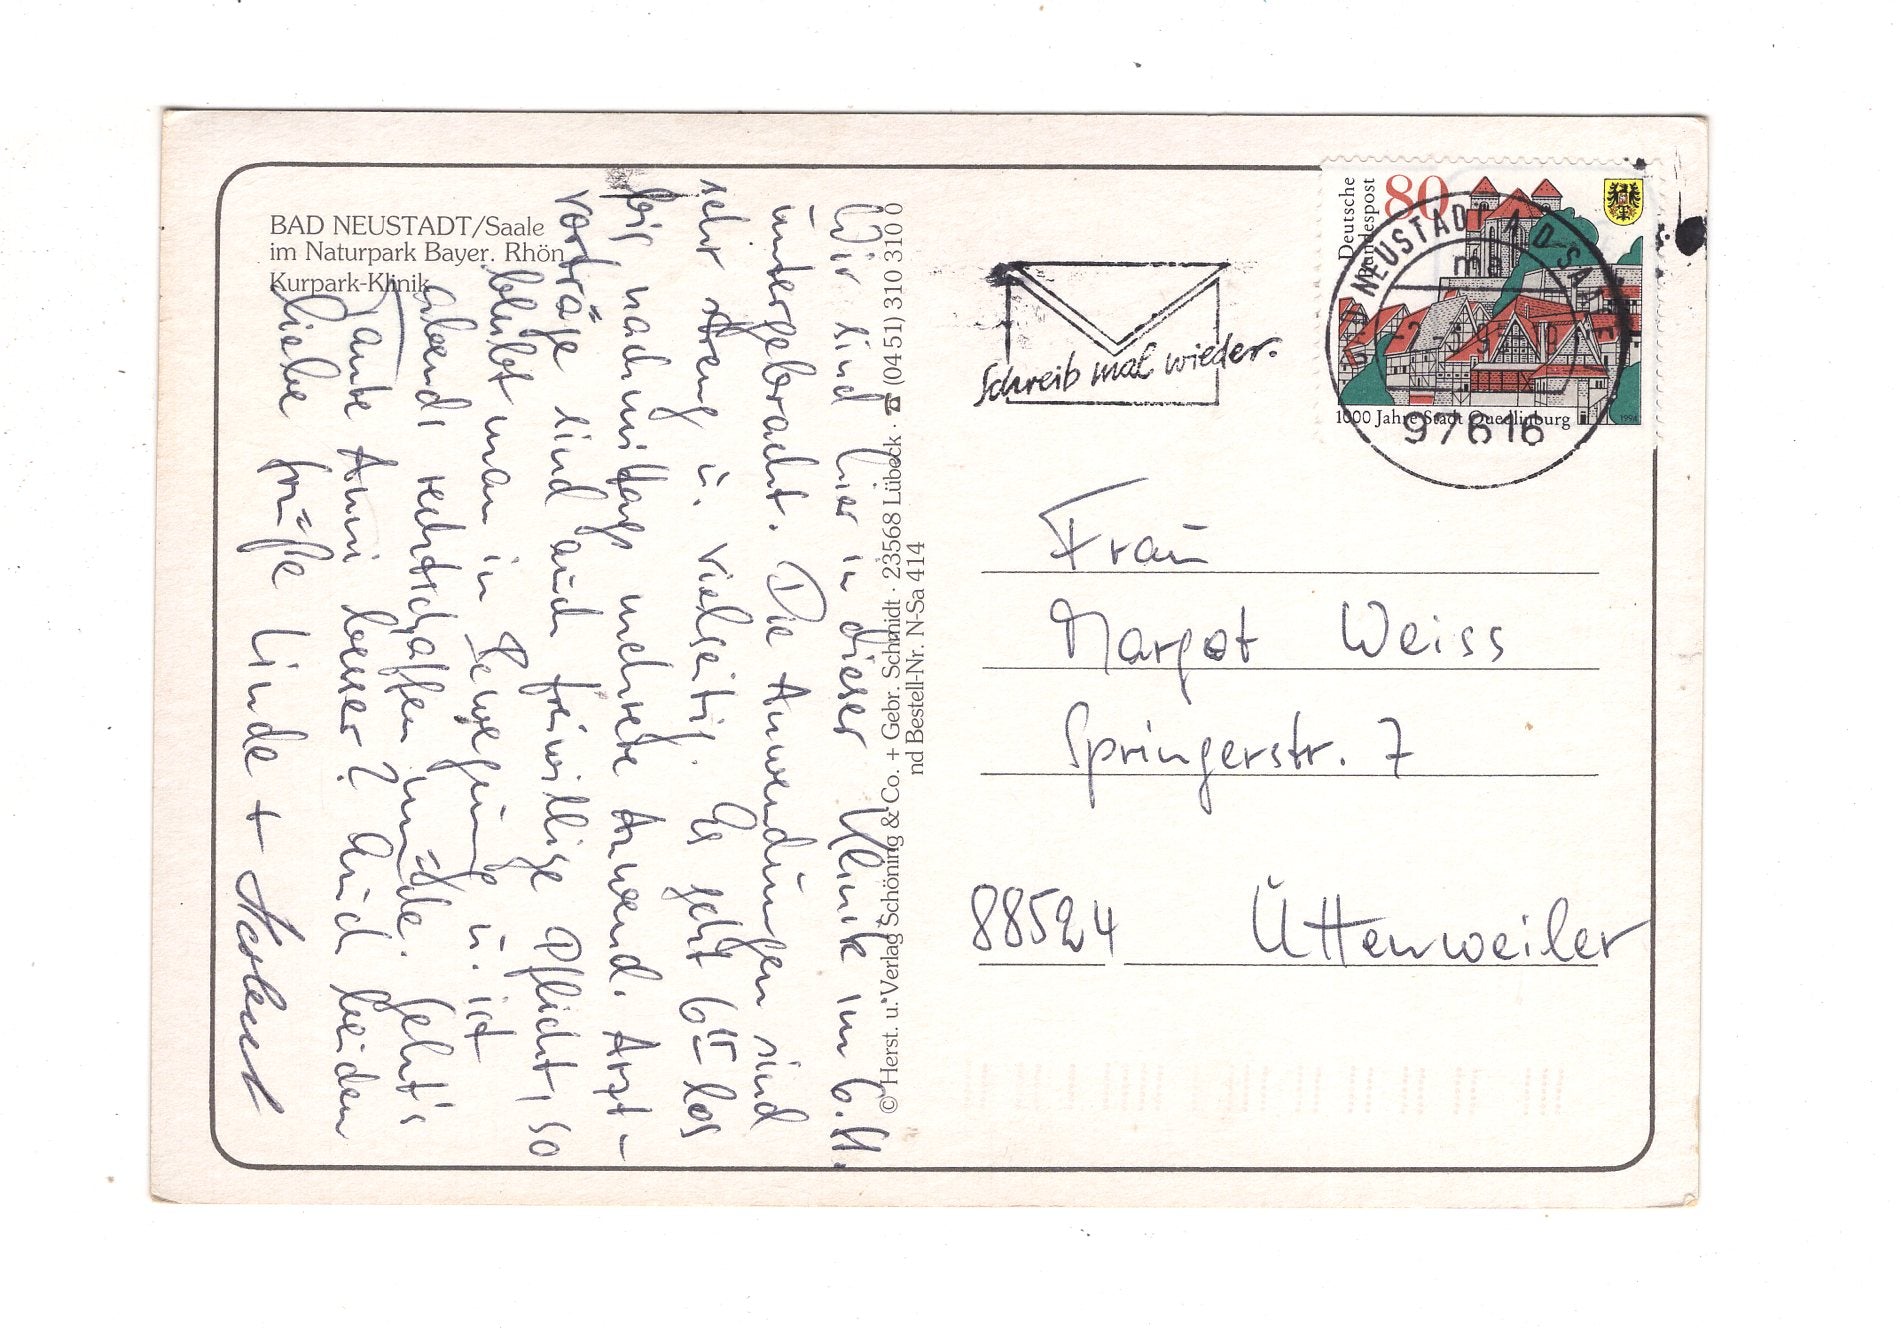 BAD NEUSTADT/Saale
im Naturpark Bayer. Rhön
Kurpark-Klinik
Wir sind hier in dieser Klinik im 6. St.
untergebracht. Die Anwendungen sind
sehr streng u. vielseitig. Es geht 6¹⁵ los
bis nachmittags mehrere Anwend. Arzt-
vorträge sind auch freiwillige Pflicht, so
bleibt man in Bewegung u. ist
abends rechtschaffen müde. Geht's
Tante Anni besser? Euch beiden
liebe Grüße Linde + Herbert
© Herst. u. Verlag Schöning & Co. + Gebr. Schmidt · 23568 Lübeck · ☎ (0451) 310 310 0
nd Bestell-Nr. N-Sa 414
Schreib mal wieder.
Deutsche
Bundespost
80
1000 Jahre Stadt Quedlinburg
1994
NEUSTADT A D SAALE
ma
97616
Frau
Margot Weiss
Springerstr. 7
88524 Uttenweiler